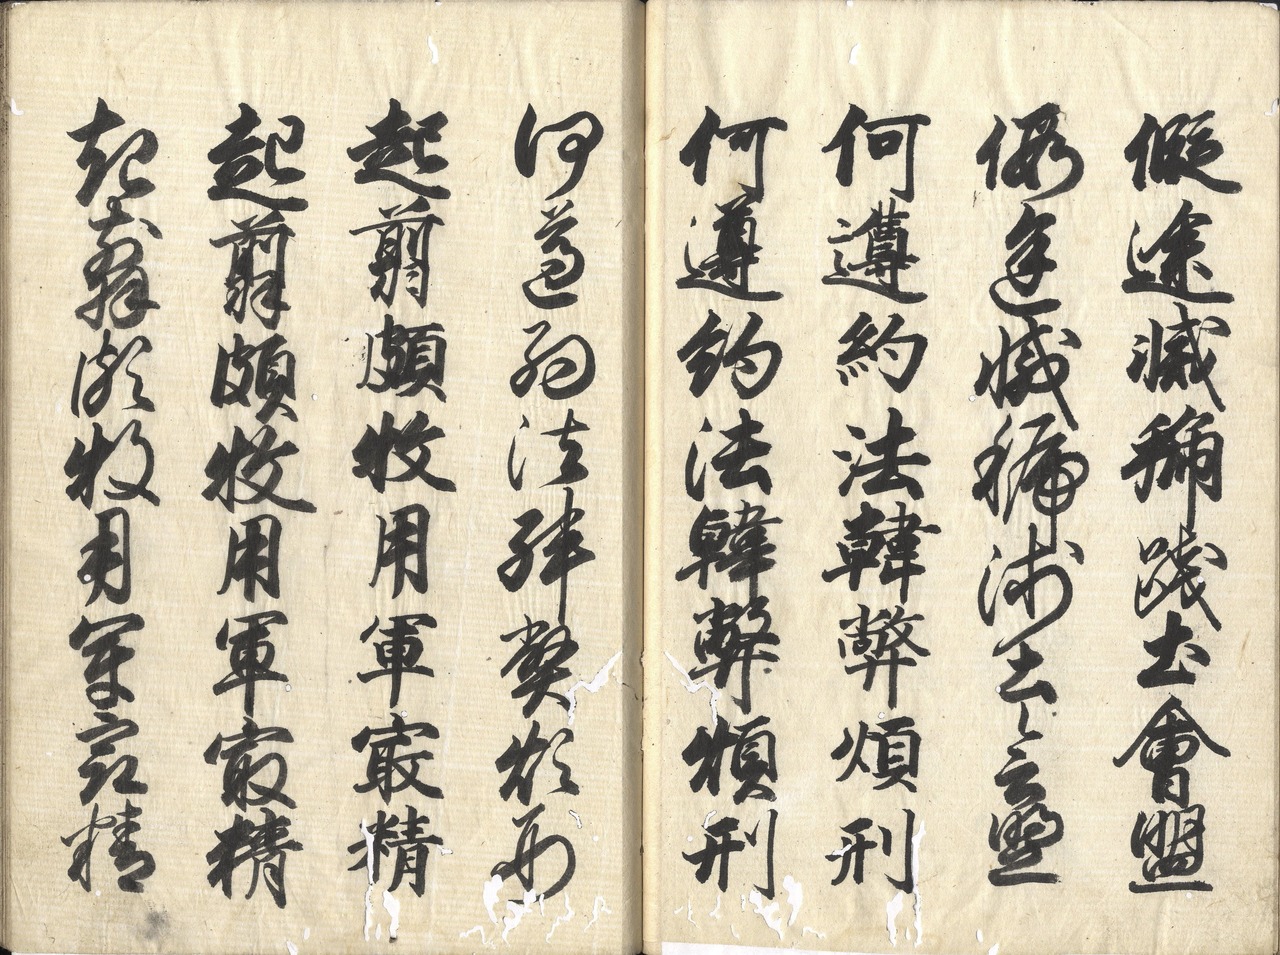 假途滅虢踐土會盟
假途滅虢踐土會盟
何遵約法韓弊煩刑
何遵約法韓弊煩刑
何遵約法韓弊煩刑
起翦頗牧用軍最精
起翦頗牧用軍最精
起翦頗牧用軍最精